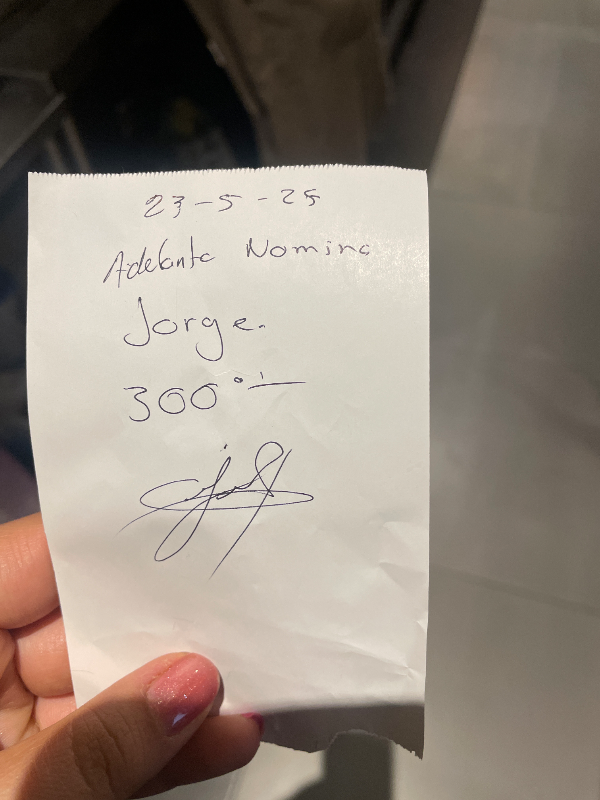 23-5-25
Adelanto Nomina
Jorge.
300°'—